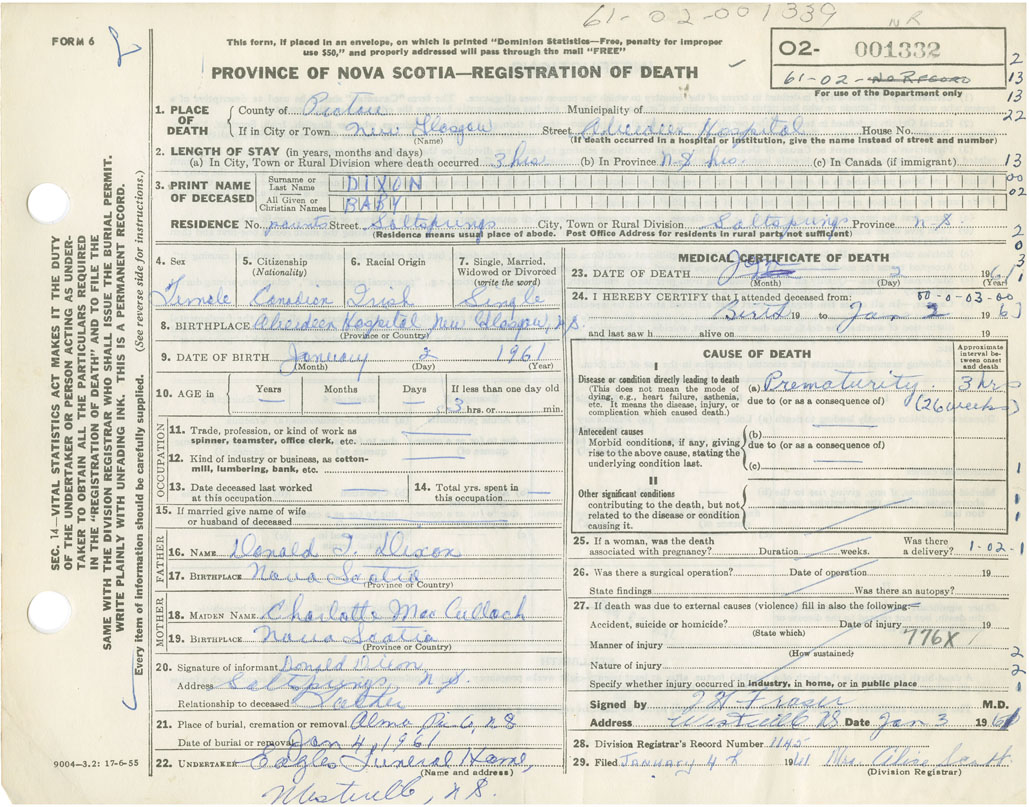 61-02-001339
NR
FORM 6
This form, if placed in an envelope, on which is printed "Dominion Statistics—Free, penalty for improper
use $50," and properly addressed will pass through the mail "FREE"
02- 001332
61-02- No Record
For use of the Department only
PROVINCE OF NOVA SCOTIA—REGISTRATION OF DEATH
1. PLACE OF DEATH
County of Pictou Municipality of
If in City or Town New Glasgow Street Aberdeen Hospital House No.
(Name) (If death occurred in a hospital or institution, give the name instead of street and number)
2. LENGTH OF STAY (in years, months and days)
(a) In City, Town or Rural Division where death occurred 3 hrs (b) In Province N-S hrs. (c) In Canada (if immigrant)
3. PRINT NAME OF DECEASED
Surname or Last Name DIXON
All Given or Christian Names BABY
RESIDENCE No. Street Saltsprings City, Town or Rural Division Saltsprings Province N-S.
(Residence means usual place of abode. Post Office Address for residents in rural parts not sufficient)
4. Sex
Female
5. Citizenship (Nationality)
Canadian
6. Racial Origin
Irish
7. Single, Married, Widowed or Divorced (write the word)
Single
8. BIRTHPLACE Aberdeen Hospital New Glasgow, N.S.
(Province or Country)
9. DATE OF BIRTH January 2 1961
(Month) (Day) (Year)
10. AGE in Years Months Days If less than one day old
3 hrs. or min.
OCCUPATION
11. Trade, profession, or kind of work as
spinner, teamster, office clerk, etc.
12. Kind of industry or business, as cotton-
mill, lumbering, bank, etc.
13. Date deceased last worked
at this occupation
14. Total yrs. spent in
this occupation
15. If married give name of wife
or husband of deceased
FATHER
16. NAME Donald T. Dixon
17. BIRTHPLACE Nova Scotia
(Province or Country)
MOTHER
18. MAIDEN NAME Charlotte MacCulloch
19. BIRTHPLACE Nova Scotia
(Province or Country)
20. Signature of informant Donald Dixon
Address Saltsprings N.S.
Relationship to deceased Father
21. Place of burial, cremation or removal Alma Pic. Co, N S
Date of burial or removal Jan 4, 1961
22. UNDERTAKER Eagles Funeral Home,
(Name and address)
Westville, N.S.
MEDICAL CERTIFICATE OF DEATH
23. DATE OF DEATH Jan 2 1961
(Month) (Day) (Year)
00-0-03-00
24. I HEREBY CERTIFY that I attended deceased from:
Birth 19 to Jan 2 1961
and last saw h alive on 19
CAUSE OF DEATH
Approximate interval between onset and death
I
Disease or condition directly leading to death
(This does not mean the mode of
dying, e.g., heart failure, asthenia,
etc. It means the disease, injury, or
complication which caused death.)
(a) Prematurity 3 hrs
due to (or as a consequence of) (26 weeks)
Antecedent causes
Morbid conditions, if any, giving
rise to the above cause, stating the
underlying condition last.
(b)
due to (or as a consequence of)
(c)
II
Other significant conditions
contributing to the death, but not
related to the disease or condition
causing it.
25. If a woman, was the death
associated with pregnancy? Duration weeks. Was there
a delivery? 1-02-1
26. Was there a surgical operation? Date of operation 19
State findings Was there an autopsy?
27. If death was due to external causes (violence) fill in also the following:
Accident, suicide or homicide? Date of injury 19
(State which)
776X
Manner of injury
(How sustained)
Nature of injury
Specify whether injury occurred in industry, in home, or in public place
Signed by J H Fraser M.D.
Address Westville N.S. Date Jan 3 1961
28. Division Registrar's Record Number 1145
29. Filed January 4th 1961 Mrs Aline Scott
(Division Registrar)
SEC. 14—VITAL STATISTICS ACT MAKES IT THE DUTY
OF THE UNDERTAKER OR PERSON ACTING AS UNDER-
TAKER TO OBTAIN ALL THE PARTICULARS REQUIRED
IN THE "REGISTRATION OF DEATH" AND TO FILE THE
SAME WITH THE DIVISION REGISTRAR WHO SHALL ISSUE THE BURIAL PERMIT.
WRITE PLAINLY WITH UNFADING INK. THIS IS A PERMANENT RECORD.
Every item of information should be carefully supplied. (See reverse side for instructions.)
9004—3.2: 17-6-55
2
13
13
22
13
00
02
2
0
3
1
1
1
1
2
2
1